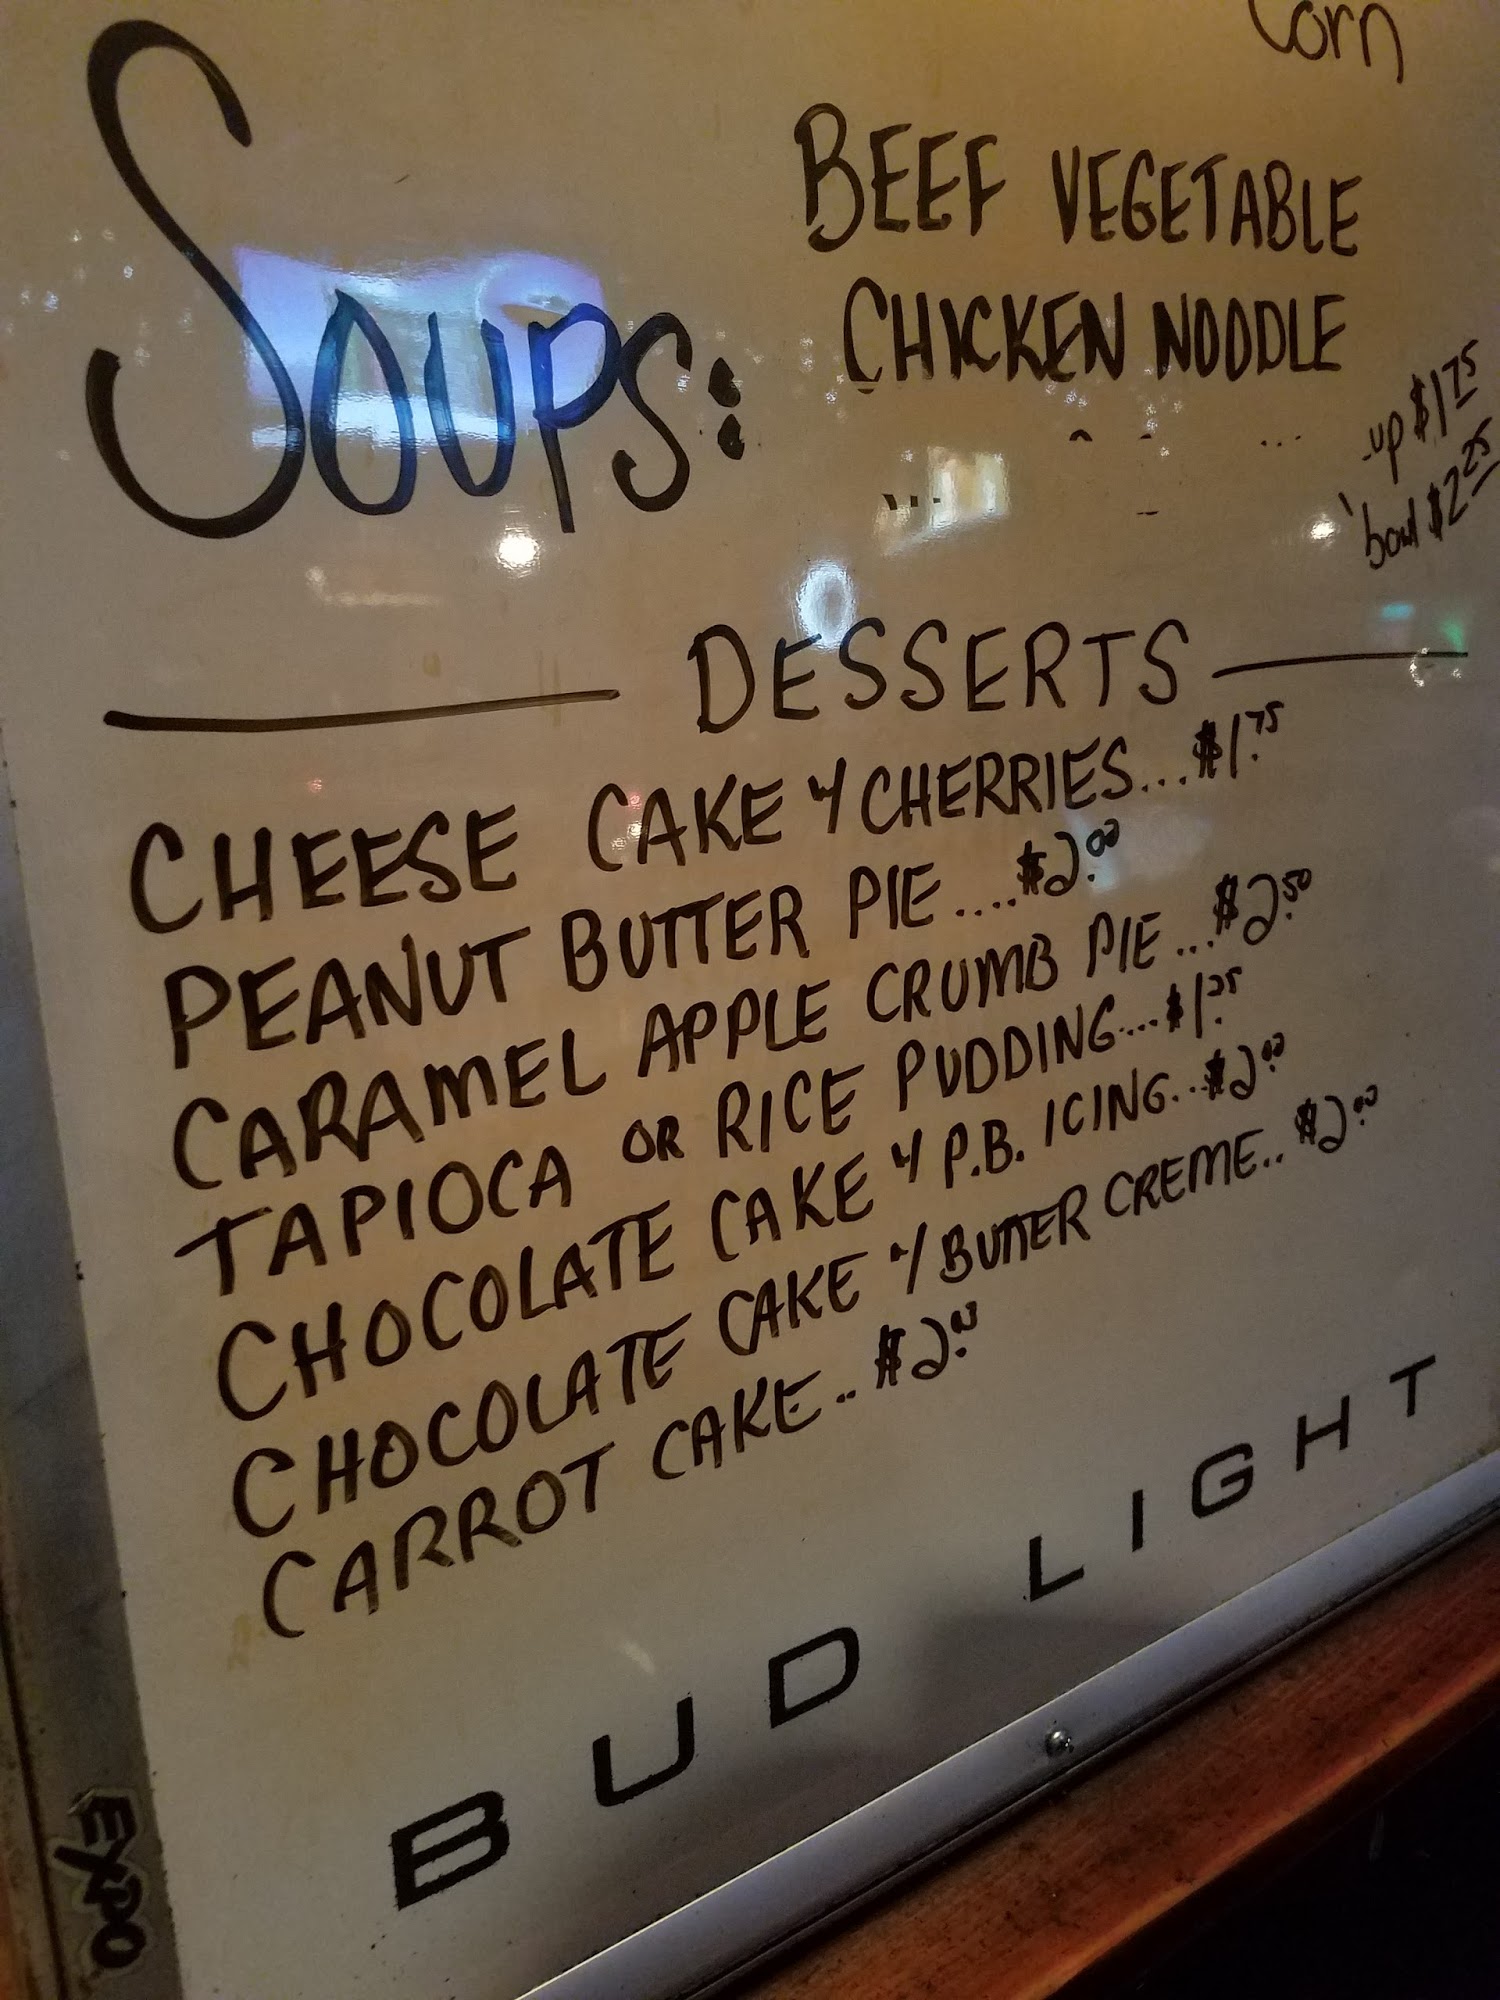 Corn
SOUPS:
BEEF VEGETABLE
CHICKEN NOODLE
up $1.75
bowl $2.25
DESSERTS
CHEESE CAKE w/ CHERRIES...$1.75
PEANUT BUTTER PIE....$2.00
CARAMEL APPLE CRUMB PIE...$2.50
TAPIOCA OR RICE PUDDING....$1.25
CHOCOLATE CAKE w/ P.B. ICING...$2.00
CHOCOLATE CAKE w/ BUTTER CREME..$2.00
CARROT CAKE..$2.00
BUD LIGHT
EXPO